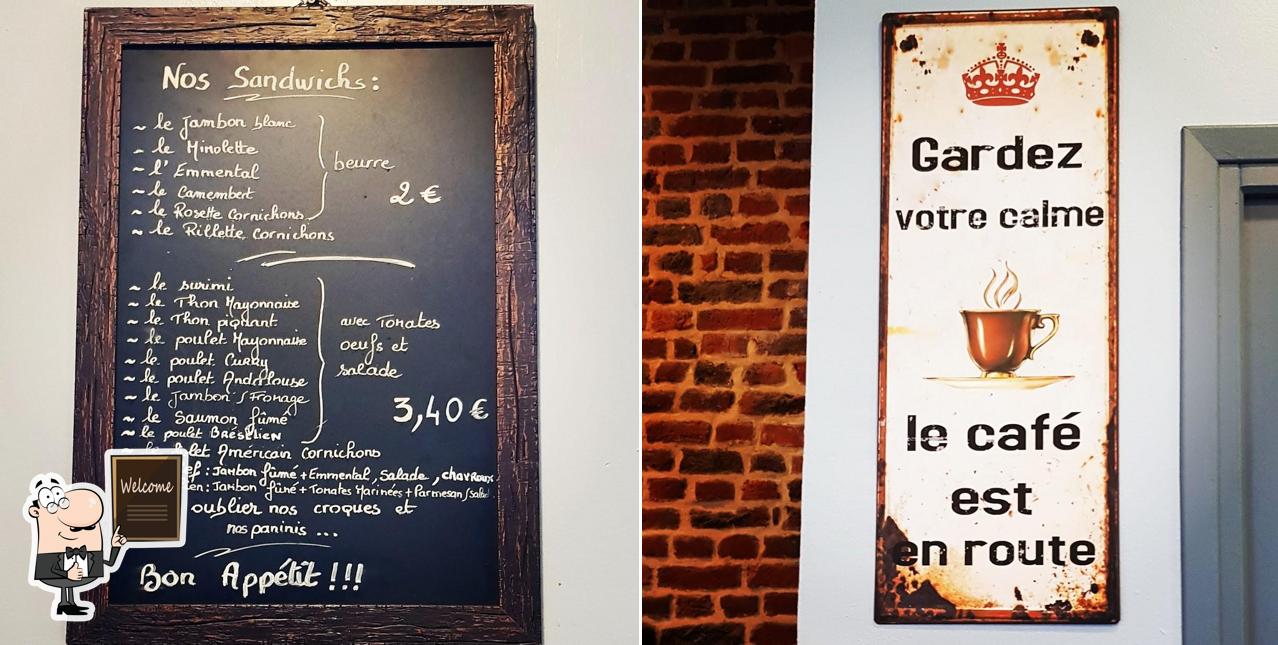 Nos Sandwichs :
~ le Jambon blanc
~ le Mimolette
~ l'Emmental
~ le Camembert
~ le Rosette Cornichons
~ le Rillette Cornichons
beurre
2 €
~ le surimi
~ le Thon Mayonnaise
~ le Thon piquant
~ le poulet Mayonnaise
~ le poulet Curry
~ le poulet Andalouse
~ le Jambon / Fromage
~ le Saumon fûmé
~ le poulet BRÉSILIEN
avec Tomates
oeufs et
salade
3,40 €
Américain Cornichons
: Jambon fûmé + Emmental, Salade, chavroux
: Jambon fûmé + Tomates Marinées + Parmesan /
oublier nos croques et
nos paninis ...
Bon Appétit !!!
Welcome
Gardez
votre calme
le café
est
en route